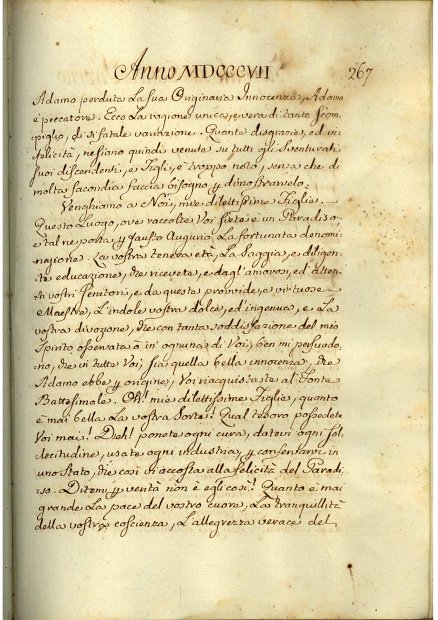 Anno MDCCCVII 267
Adamo perduta La sua Originaria Innocenza, Adamo
è peccatore. Ecco La ragione unica, e vera di tanto scom,
piglio, di sì fatale variazione. Quante disgrazie, ed in,
felicità, ne siano quindi venute su tutti gli Sventurati
suoi discendenti, e Figli, è troppo noto, senza che di
molta facondia faccia bisogno p dimostravelo.
Venghiamo a Noi, mie dilettissime Figlie.
Questo Luogo, ove raccolte Voi siete è un Paradiso,
e tal ne porta p fausto Augurio La fortunata denomi,
nazione. La vostra tenera età, La saggia, e diligen,
te educazione, che ricevete, e dagl'amorosi, ed atten,
ti vostri Genitori, e da queste provvide, e virtuose
Maestre, L'indole vostra dolce, ed ingenua, e La
vostra divozione, che con tanta soddisfazione del mio
Spirito osservata ò in ognuna di Voi, ben mi persuado,
no, che in tutte Voi, sia quella bella innocenza, che
Adamo ebbe p origine, Voi riacquistate al Fonte
Battesimale. Oh! mie dilettissime Figlie, quanto
è mai bella La vostra Sorte! Qual tesoro possedete
Voi mai! Deh! ponete ogni cura, datevi ogni sol,
lecitudine, usate ogni industria p conservarvi in
uno stato, che così si accosta alla felicità del Paradi,
so. Ditemi p verità non è egli così! Quanto è mai
grande La pace del vostro cuore, La tranquillità
della vostra coscienza, L'allegrezza verace del